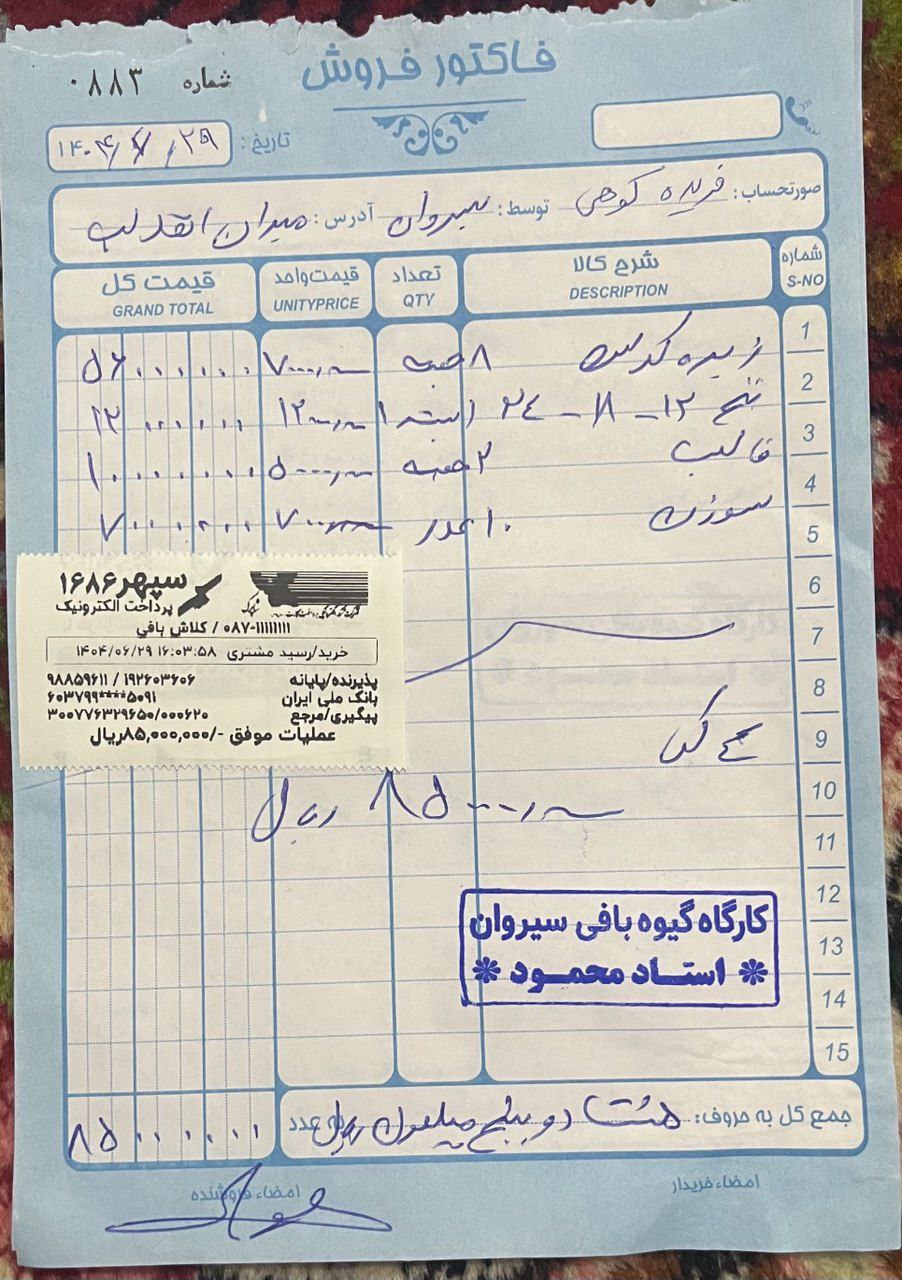 فاکتور فروش
شماره ۰۸۸۳
تاریخ: ۱۴۰۴/۶/۲۹
صورتحساب: فریده کوهی توسط: سیروان آدرس: میدان انقلاب
شماره شرح کالا تعداد قیمت واحد قیمت کل
S-NO DESCRIPTION QTY UNITYPRICE GRAND TOTAL
1 زیره ۸ ۷۰۰۰/۰۰۰ ۵۶۰۰۰۰۰۰
2 نخ ۱۲ - ۱۸ - ۲۴ ۱ ۱۲۰۰۰/۰۰۰ ۱۲۰۰۰۰۰۰
3 قالب ۲ ۵۰۰۰/۰۰۰ ۱۰۰۰۰۰۰۰
4 سوزن ۱۰ عدد ۷۰۰/۰۰۰ ۷۰۰۰۰۰۰
5
6
7
8
9
10
۸۵۰۰۰/۰۰۰ ریال
11
12
13
14
15
سپهر ۱۶۸۶
پرداخت الکترونیک
۰۸۷-۱۱۱۱۱۱۱۱ / کلاش بافی
خرید/رسید مشتری ۱۴۰۴/۰۶/۲۹ ۱۶:۰۳:۵۸
پذیرنده/پایانه ۹۸۸۵۹۶۱۱ / ۱۹۲۶۰۳۶۰۶
بانک ملی ایران ۶۰۳۷۹۹****۵۰۹۱
پیگیری/مرجع ۳۰۰۷۷۶۳۲۹۶۵۰/۰۰۰۶۲۰
عملیات موفق -/۸۵,۰۰۰,۰۰۰ریال
کارگاه گیوه بافی سیروان
استاد محمود
جمع کل به حروف: هشتاد و پنج میلیون ریال به عدد ۸۵۰۰۰۰۰۰
امضاء خریدار امضاء فروشنده